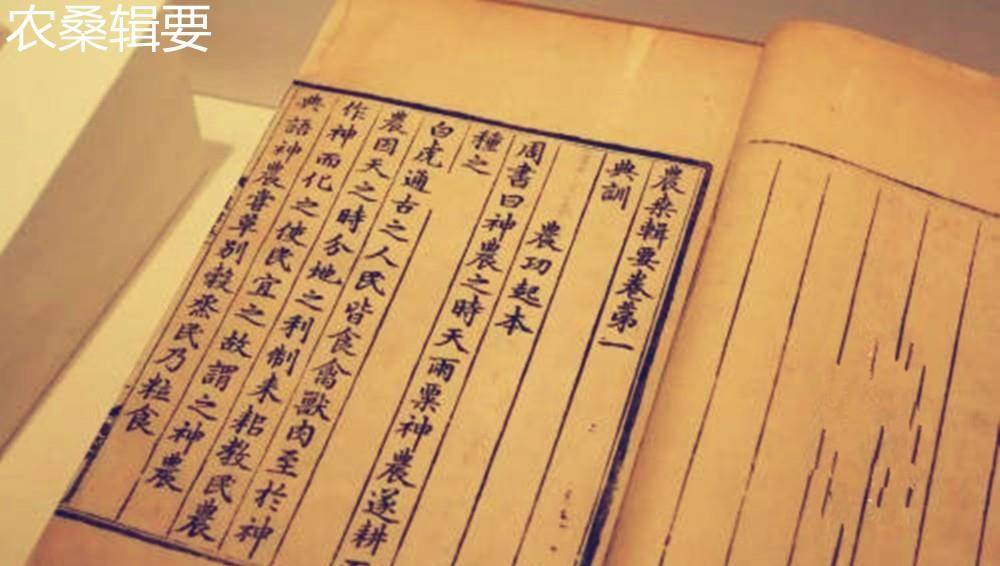 农桑辑要
農桑輯要卷第一
典訓
農功起本
周書曰神農之時天雨粟神農遂耕而
種之
白虎通古之人民皆食禽獸肉至於神
農因天之時分地之利制耒耜教民農
作神而化之使民宜之故謂之神農
典語神農嘗草別穀烝民乃粒食